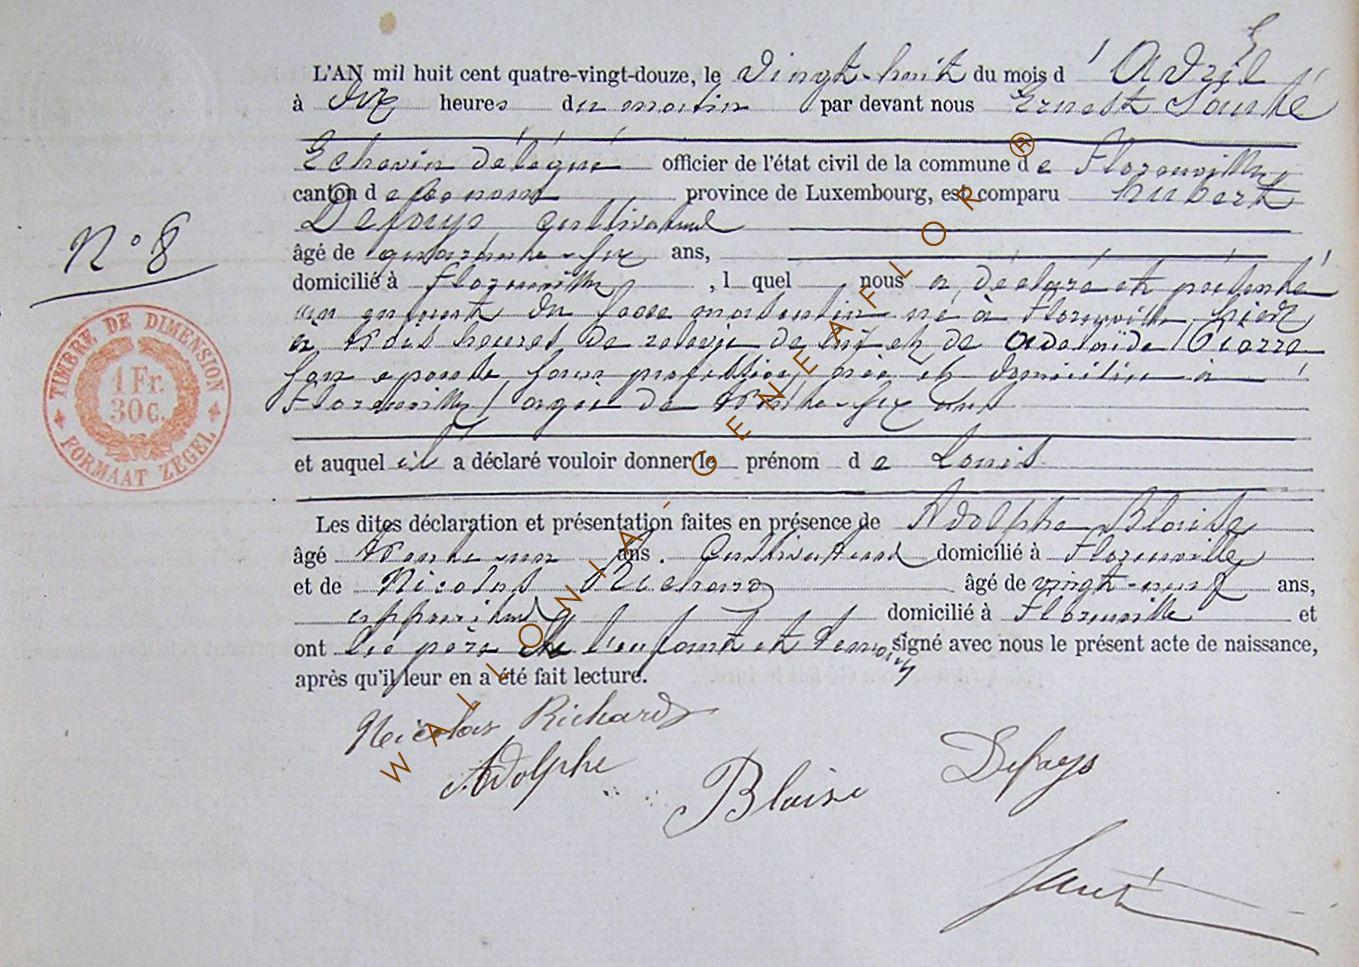 L'AN mil huit cent quatre-vingt-douze, le vingt-huit du mois d'Avril
à dix heures du matin par devant nous Ernest
Echevin délégué officier de l'état civil de la commune de Florenville,
canton de province de Luxembourg, est comparu Hubert
Defays Cultivateur
âgé de quarante-six ans,
domicilié à Florenville, l quel nous a déclaré et présenté
un enfant du sexe masculin né à Florenville hier
à trois heures de relevée de lui et de Adelaïde Pierre
son épouse, sans profession, née et domiciliée à
Florenville, âgée de trente-six ans
et auquel il a déclaré vouloir donner le prénom de Louis
Les dites déclaration et présentation faites en présence de Adolphe Blaise
âgé trente un ans. Cultivateur domicilié à Florenville
et de Nicolas Richard âgé de vingt-neuf ans,
domicilié à Florenville et
ont les père de l'enfant et témoins signé avec nous le présent acte de naissance,
après qu'il leur en a été fait lecture.
N° 8
TIMBRE DE DIMENSION
1 Fr.
30 c.
FORMAAT ZEGEL
Nicolas Richard
Adolphe Blaise
Defays
WALLONIA - GENEAFLOR ®